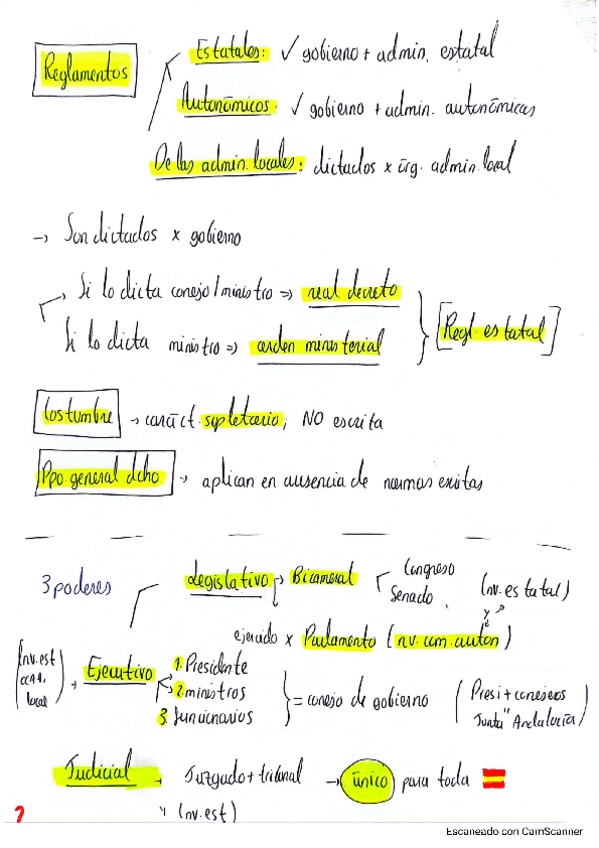 Estatales: ✓ gobierno + admin. estatal
Reglamentos
Autonómicos: ✓ gobierno + admin. autonómicas
De las admin. locales: dictados x órg. admin. local
→ Son dictados x gobierno
→ Si lo dicta consejo/ministro => real decreto
[Regl. estatal]
Si lo dicta ministro => orden ministerial
Costumbre → caráct. supletario; NO escrita
Ppo. general dcho → aplican en ausencia de normas escritas
3 poderes
legislativo → Bicameral
Congreso
Senado
(nv. estatal)
ejercido x Parlamento (nv. com. autón)
(nv. est
ccaa,
local)
→ Ejecutivo
1. Presidente
2. ministros
3. funcionarios
= consejo de gobierno
(Presi + consejeros
"Junta" Andalucía)
Judicial → Juzgado + tribunal → único para toda
(nv. est)
2
Escaneado con CamScanner